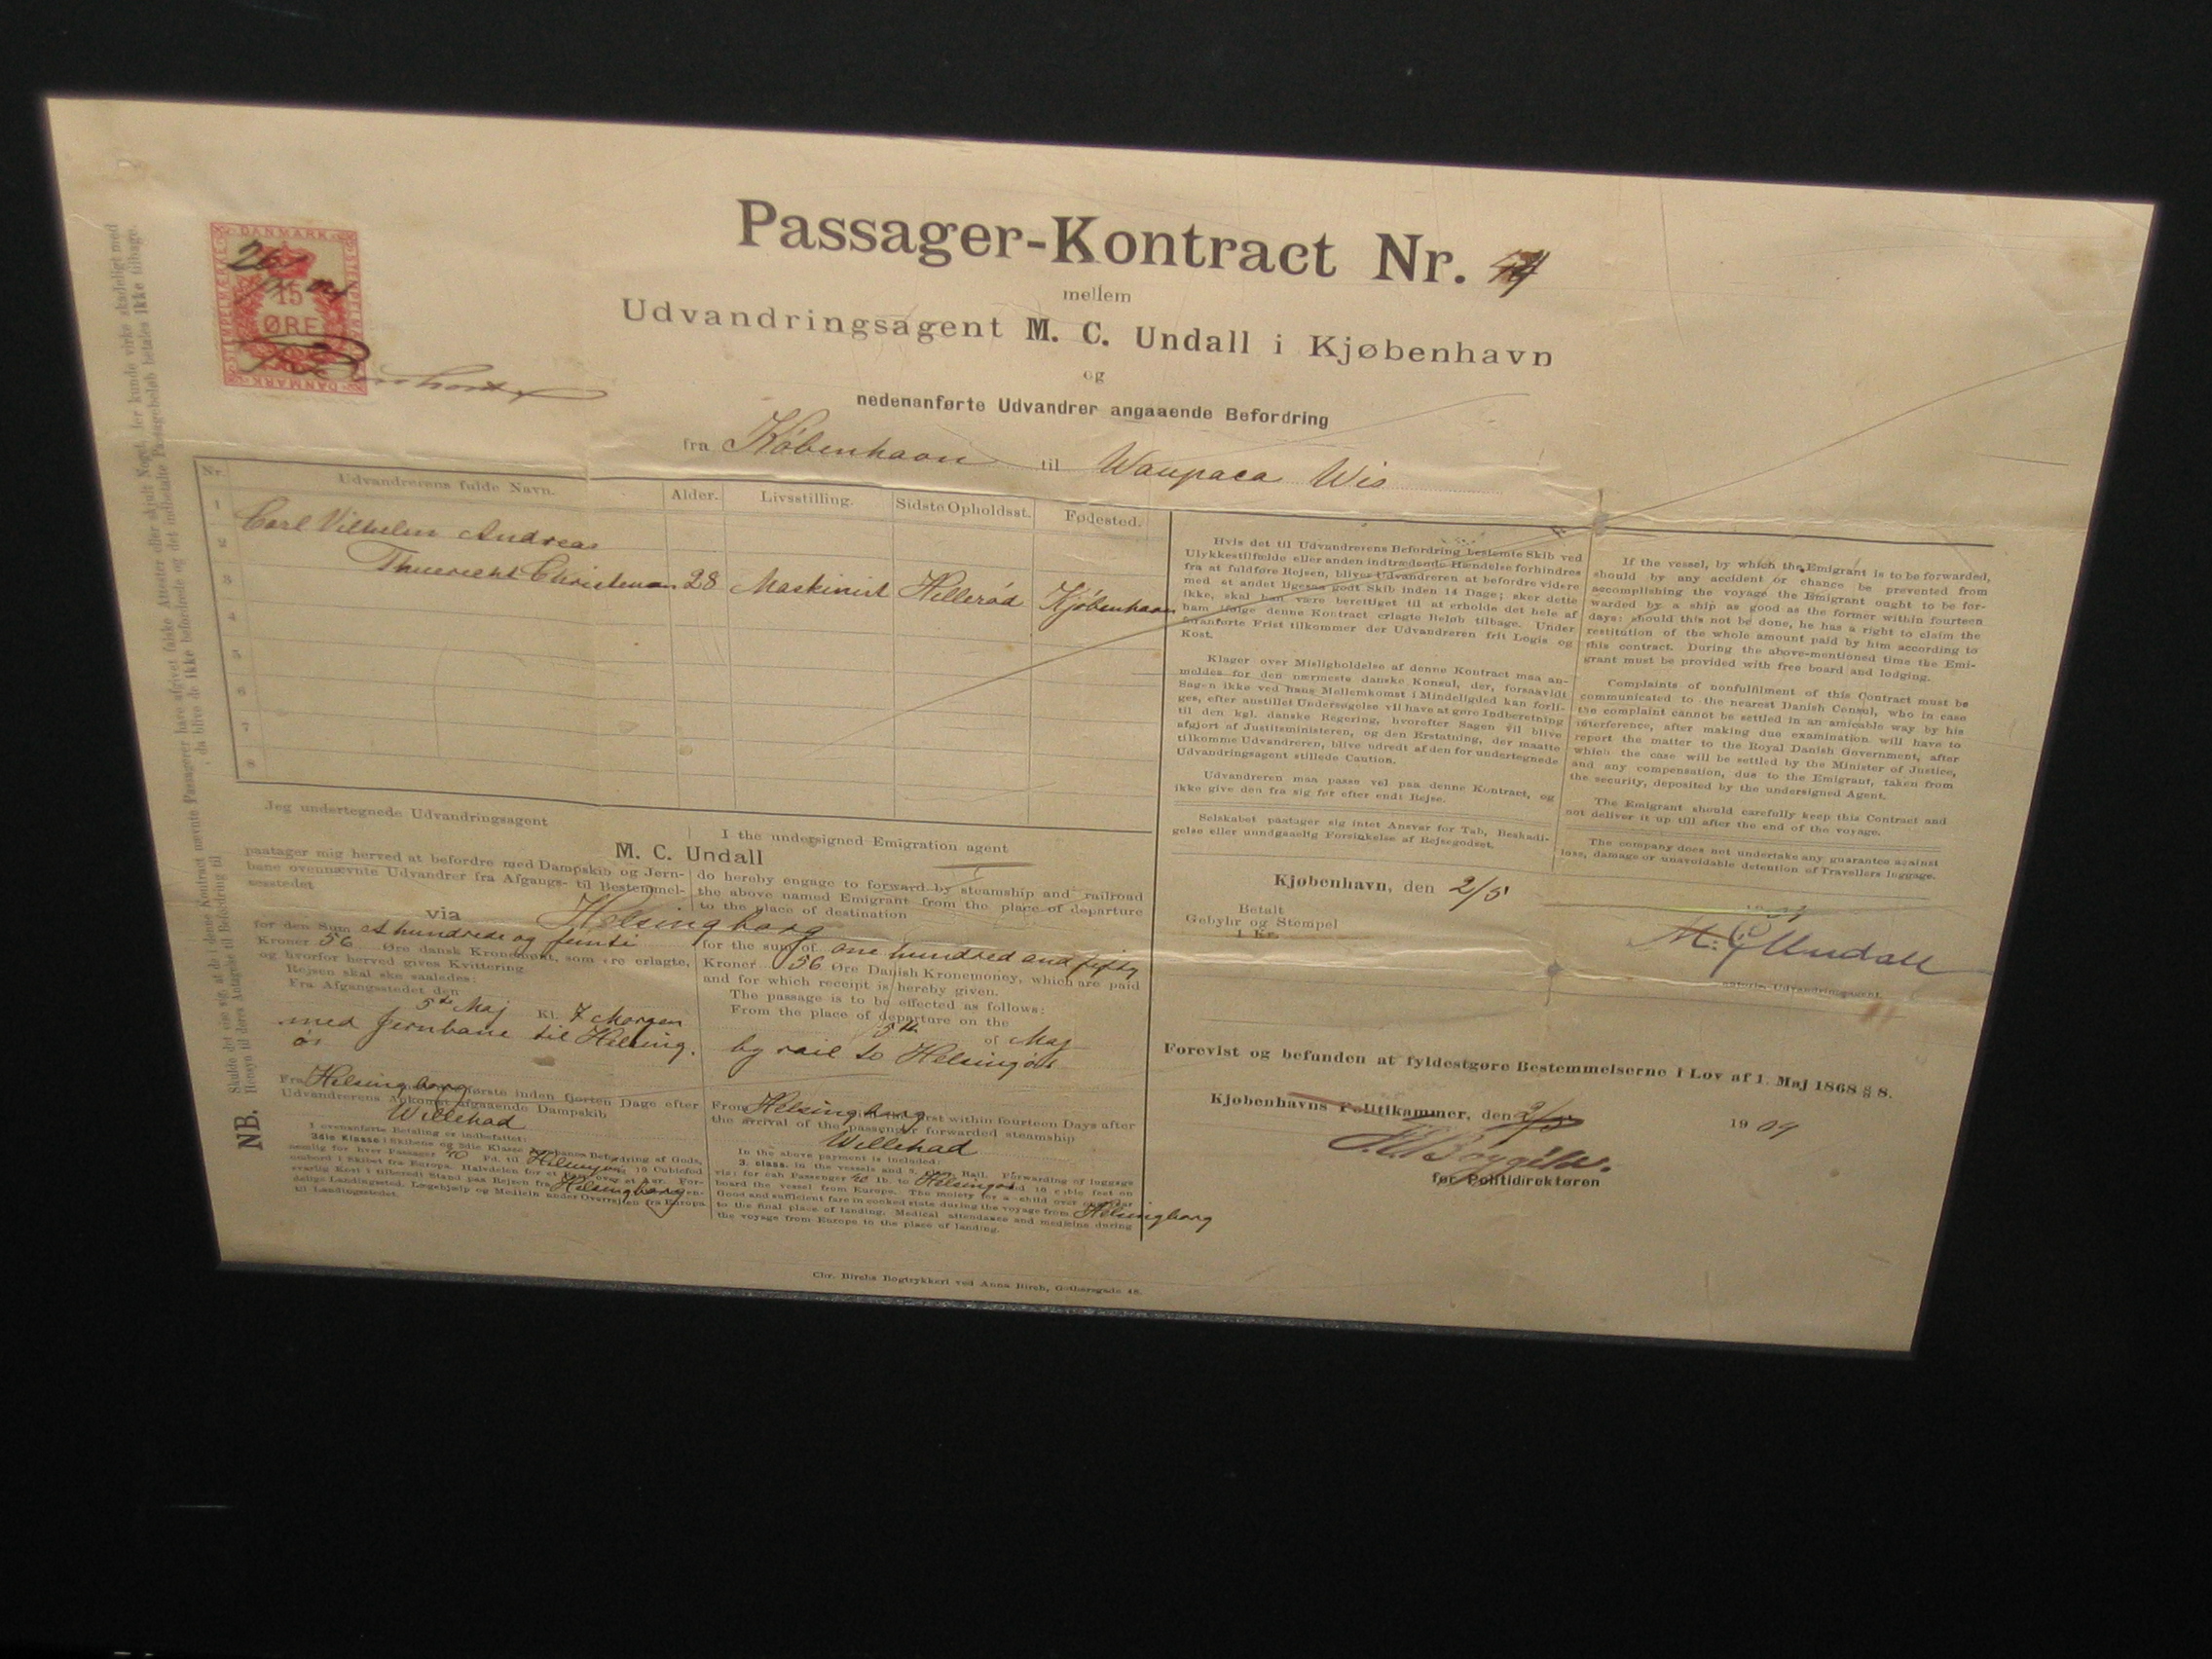 Passager-Kontract Nr.
mellem
Udvandringsagent M. C. Undall i Kjøbenhavn
og
nedenanførte Udvandrer angaaende Befordring
fra København til Waupaca Wis
DANMARK
STEMPELMÆRKE
15
ØRE
DANMARK
Nr. Udvandrerens fulde Navn. Alder. Livsstilling. Sidste Opholdsst. Fødested.
1 Carl Vilhelm Andreas
2
3 28 Maskinist Hillerød Kjøbenhavn
4
5
6
7
8
Jeg undertegnede Udvandringsagent
I the undersigned Emigration agent
M. C. Undall
paatager mig herved at befordre med Dampskib og Jern-
bane ovennævnte Udvandrer fra Afgangs- til Bestemmel-
sesstedet
do hereby engage to forward by steamship and railroad
the above named Emigrant from the place of departure
to the place of destination
via Helsingborg
for den Sum et hundrede og femti
Kroner 56 Øre dansk Kronemønt, som ere erlagte,
og hvorfor herved gives Kvittering.
Rejsen skal ske saaledes:
Fra Afgangsstedet den
5te Maj Kl. 7 Morgen
med Jernbane til Helsing.
ør
for the sum of one hundred and fifty
Kroner 56 Øre Danish Kronemoney, which are paid
and for which receipt is hereby given.
The passage is to be effected as follows:
From the place of departure on the
5th of Maj
by rail to Helsingør
Fra Helsingborg første inden fjorten Dage efter
Udvandrerens Ankomst afgaaende Dampskib
Willehad
I ovenanførte Betaling er indbefattet:
3die Klasse i Skibene og 3die Klasse Jernbane. Befordring af Gods,
nemlig for hver Passager 40 Pd. til Helsingør 10 Cubicfod
ombord i Skibet fra Europa. Halvdelen for et Barn over et Aar. For-
svarlig Kost i tilberedt Stand paa Rejsen fra Helsingborg en-
delige Landingssted. Lægehjælp og Medicin under Overrejsen fra Europa
til Landingsstedet.
From Helsingborg first within fourteen Days after
the arrival of the passenger forwarded steamship
Willehad
In the above payment is included:
3. class. in the vessels and 3. class. Rail. Forwarding of luggage
viz: for eah Passenger 40 lb. to Helsingør and 10 cubic feet on
board the vessel from Europe. The moiety for a child over one year
Good and sufficient fare in cooked state during the voyage from Helsingborg
to the final place of landing. Medical attendance and medicine during
the voyage from Europe to the place of landing.
Hvis det til Udvandrerens Befordring bestemte Skib ved
Ulykkestilfælde eller anden indtrædende Hændelse forhindres
fra at fuldføre Rejsen, bliver Udvandreren at befordre videre
med et andet ligesaa godt Skib inden 14 Dage; sker dette
ikke, skal han være berettiget til at erholde det hele af
ham ifølge denne Kontract erlagte Beløb tilbage. Under
foranførte Frist tilkommer der Udvandreren frit Logis og
Kost.
Klager over Misligholdelse af denne Kontract maa an-
meldes for den nærmeste danske Konsul, der, forsaavidt
Sagen ikke ved hans Mellemkomst i Mindelighed kan forli-
ges, efter anstillet Undersøgelse vil have at gøre Indberetning
til den kgl. danske Regering, hvorefter Sagen vil blive
afgjort af Justitsministeren, og den Erstatning, der maatte
tilkomme Udvandreren, blive udredt af den for undertegnede
Udvandringsagent stillede Caution.
Udvandreren maa passe vel paa denne Kontract, og
ikke give den fra sig før efter endt Rejse.
Selskabet paatager sig intet Ansvar for Tab, Beskadi-
gelse eller uundgaaelig Forsinkelse af Rejsegodset.
If the vessel, by which the Emigrant is to be forwarded,
should by any accident or chance be prevented from
accomplishing the voyage the Emigrant ought to be for-
warded by a ship as good as the former within fourteen
days: should this not be done, he has a right to claim the
restitution of the whole amount paid by him according to
this contract. During the above-mentioned time the Emi-
grant must be provided with free board and lodging.
Complaints of nonfulfilment of this Contract must be
communicated to the nearest Danish Consul, who in case
the complaint cannot be settled in an amicable way by his
interference, after making due examination will have to
report the matter to the Royal Danish Government, after
which the case will be settled by the Minister of Justice,
and any compensation, due to the Emigrant, taken from
the security, deposited by the undersigned Agent.
The Emigrant should carefully keep this Contract and
not deliver it up till after the end of the voyage.
The company does not undertake any guarantee against
loss, damage or unavoidable detention of Travellers luggage.
Kjøbenhavn, den 2/5
Betalt
Gebyhr og Stempel
1 Kr.
M. C. Undall
autoris. Udvandringsagent.
Forevist og befunden at fyldestgøre Bestemmelserne i Lov af 1. Maj 1868 § 8.
Kjøbenhavns Politikammer, den 2/5 1909
for Politidirektøren
NB. Skulde det vise sig, at de i denne Kontract nævnte Passagerer have afgivet falske Attester eller skjult Noget, der kunde virke skadeligt med
Hensyn til deres Antagelse til Befordring til , da blive de ikke befordrede og det indbetalte Passagebeløb betales ikke tilbage.
Chr. Birchs Bogtrykkeri ved Anna Birch, Gothersgade 48.